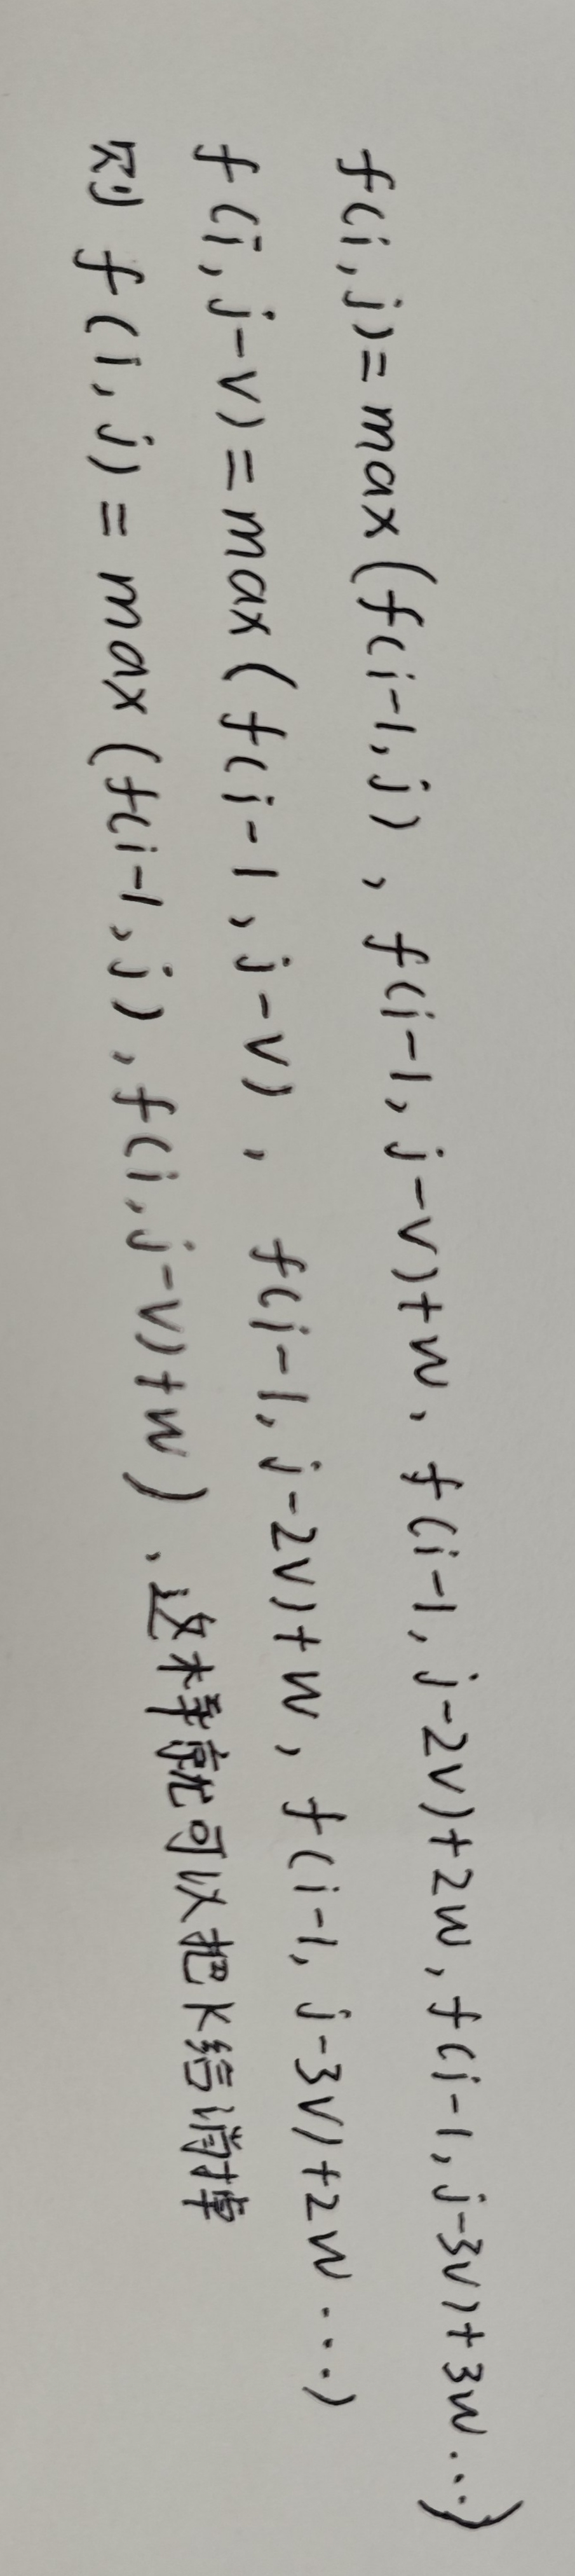 f(i,j)=max(f(i-1,j),f(i-1,j-v)+w,f(i-1,j-2v)+2w,f(i-1,j-3v)+3w...)
f(i,j-v)=max(f(i-1,j-v),f(i-1,j-2v)+w,f(i-1,j-3v)+2w...)
则f(i,j)=max(f(i-1,j),f(i,j-v)+w),这样就可以把k给消掉